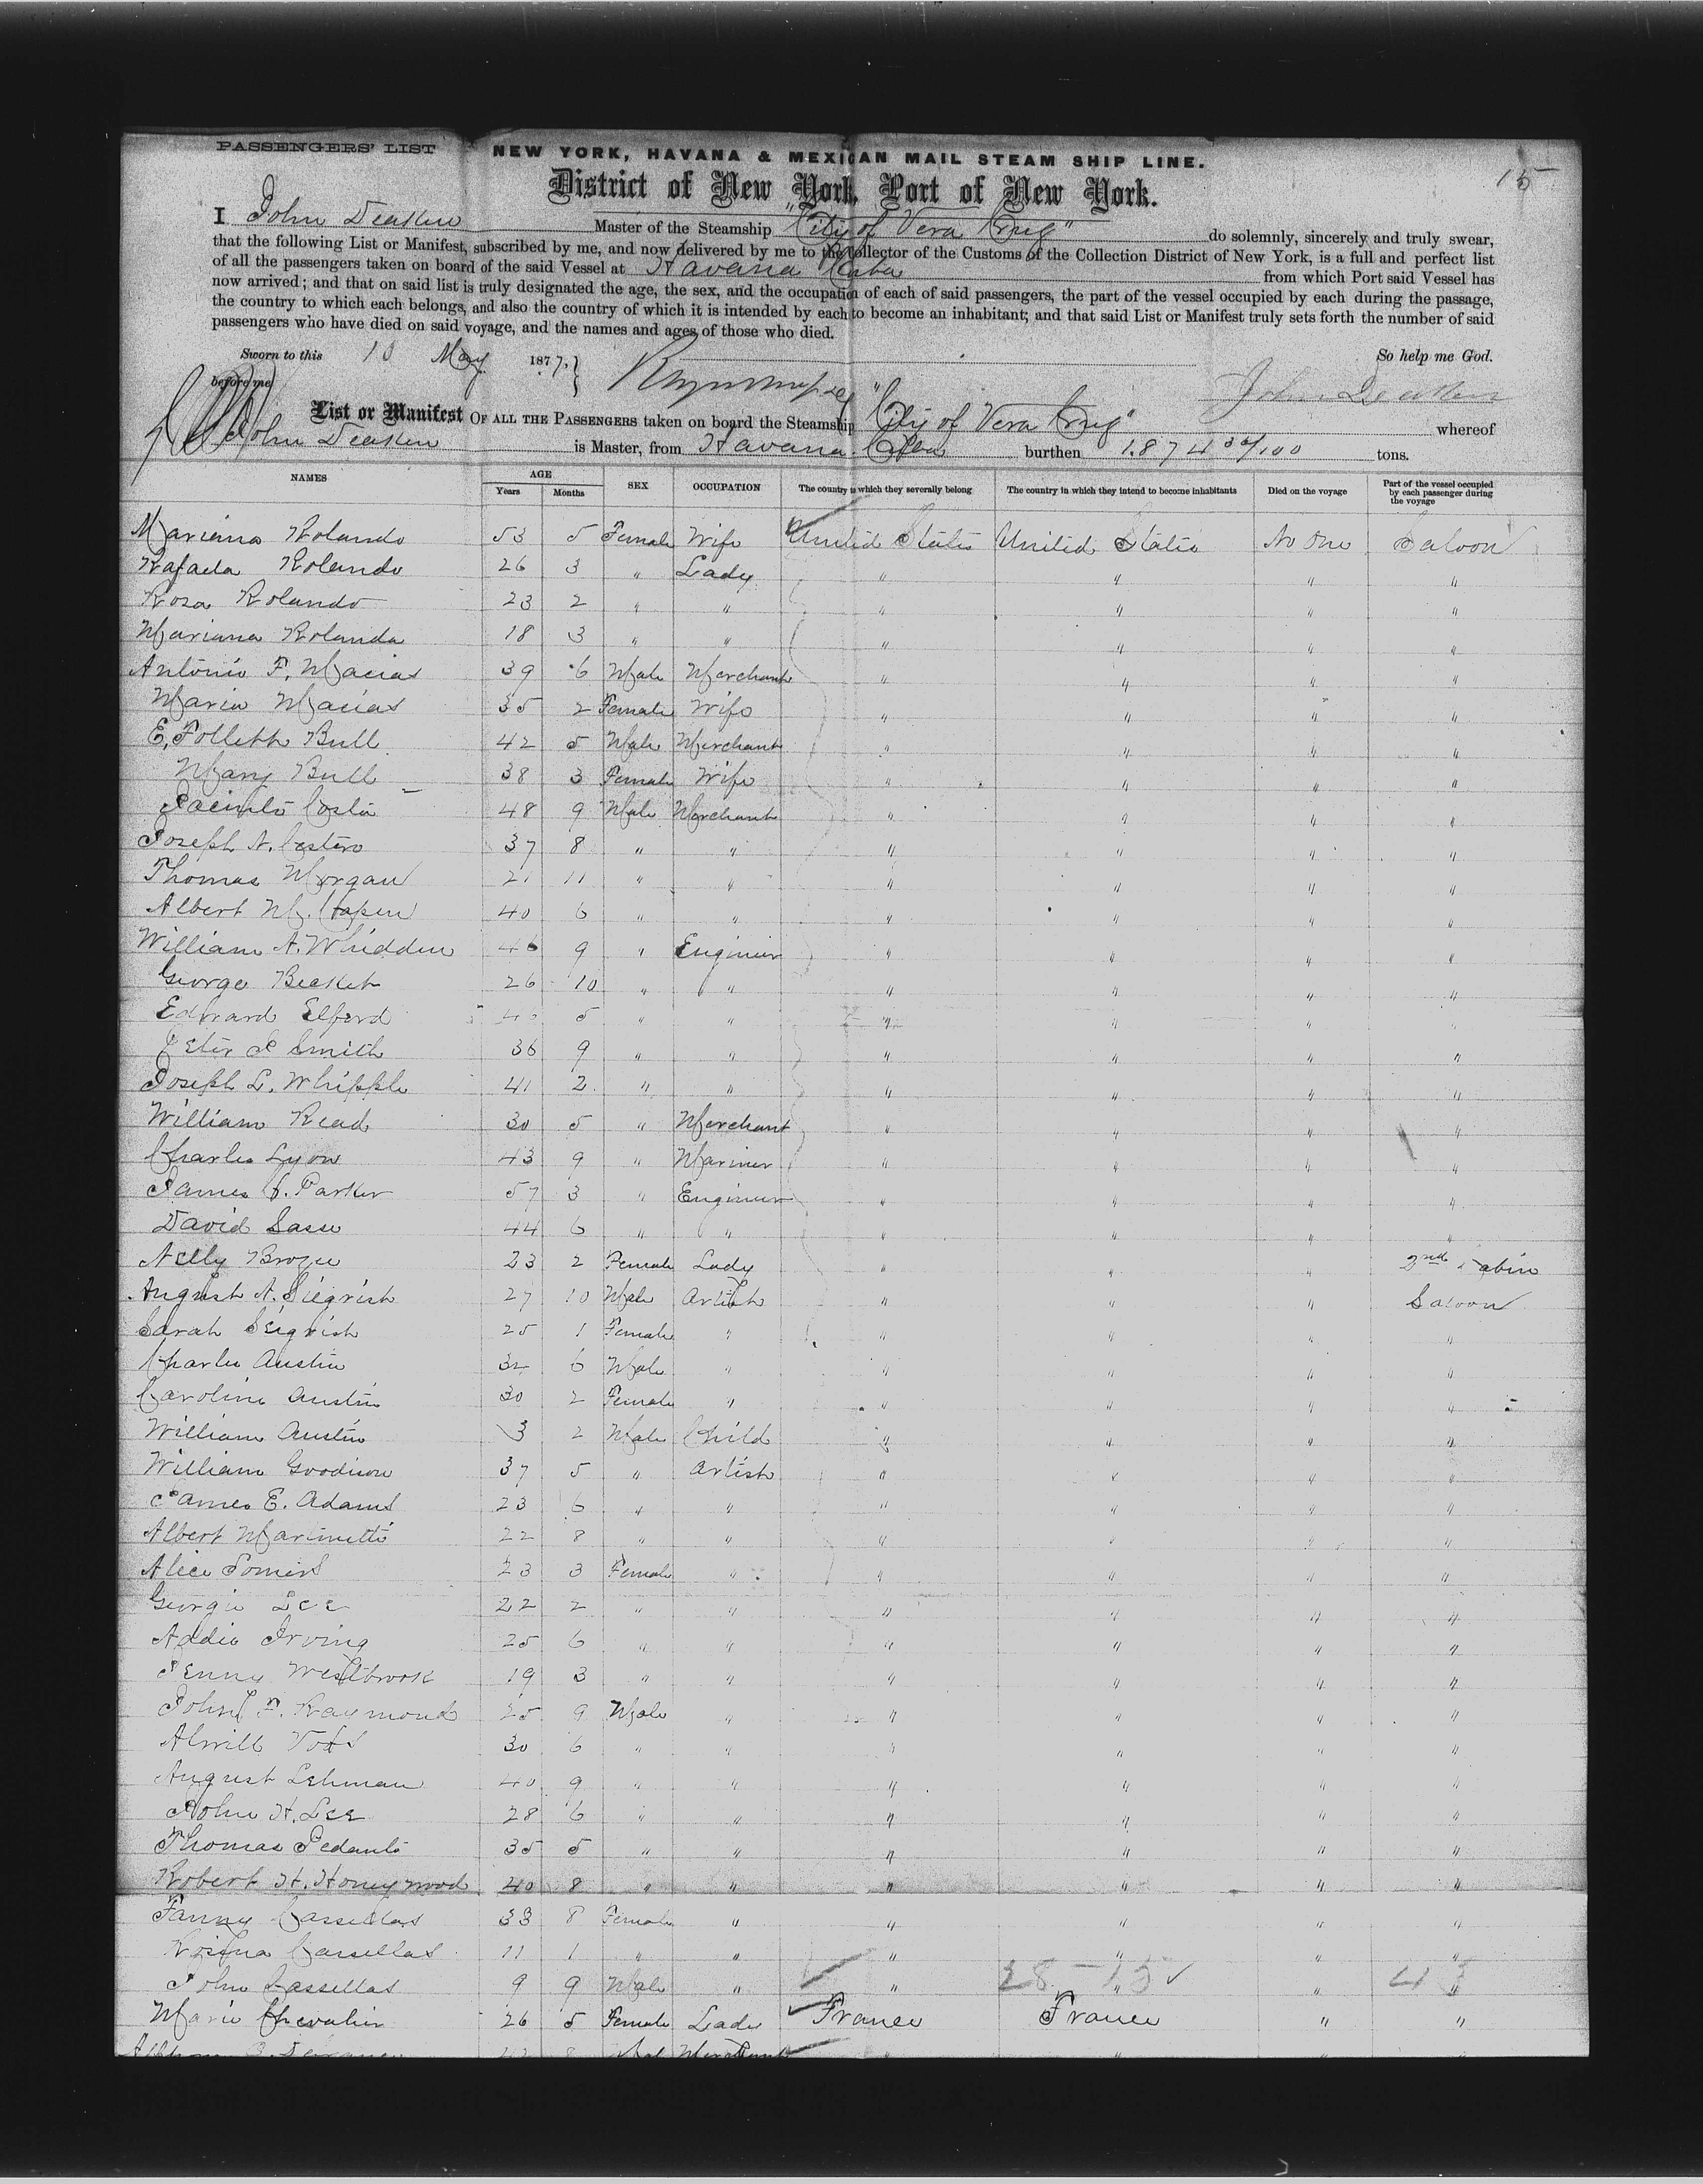 15
PASSENGERS' LIST
NEW YORK, HAVANA & MEXICAN MAIL STEAM SHIP LINE.
District of New York, Port of New York.
I John Deaken Master of the Steamship "City of Vera Cruz" do solemnly, sincerely and truly swear,
that the following List or Manifest, subscribed by me, and now delivered by me to the Collector of the Customs of the Collection District of New York, is a full and perfect list
of all the passengers taken on board of the said Vessel at Havana Cuba from which Port said Vessel has
now arrived; and that on said list is truly designated the age, the sex, and the occupation of each of said passengers, the part of the vessel occupied by each during the passage,
the country to which each belongs, and also the country of which it is intended by each to become an inhabitant; and that said List or Manifest truly sets forth the number of said
passengers who have died on said voyage, and the names and ages of those who died.
Sworn to this 10 May 1877. So help me God.
before me John Deaken
List or Manifest OF ALL THE PASSENGERS taken on board the Steamship "City of Vera Cruz" whereof
John Deaken is Master, from Havana Cuba burthen 1874 30/100 tons.
NAMES AGE Years Months SEX OCCUPATION The country to which they severally belong The country in which they intend to become inhabitants Died on the voyage Part of the vessel occupied by each passenger during the voyage
Mariana Rolando 53 5 Female Wife United States United States No One Saloon
Rafaela Rolando 26 3 " Lady " " " "
Rosa Rolando 23 2 " " " " " "
Mariana Rolanda 18 3 " " " " " "
Antonio F. Macias 39 6 Male Merchant " " " "
Maria Macias 35 2 Female Wife " " " "
E. Follett Bull 42 5 Male Merchant " " " "
Mary Bull 38 3 Female Wife " " " "
Jacinto Costa 48 9 Male Merchant " " " "
Joseph N. Cestero 37 8 " " " " " "
Thomas Morgan 21 11 " " " " " "
Albert M. 40 6 " " " " " "
William A. Whidden 46 9 " Engineer " " " "
George Becket 26 10 " " " " " "
Edward Elford 5 " " " " " "
Peter J Smith 36 9 " " " " " "
Joseph L. Whipple 41 2 " " " " " "
William Read 30 5 " Merchant " " " "
Charles Lyon 43 9 " Mariner " " " "
James C. Parker 57 3 " Engineer " " " "
David 44 6 " " " " " "
Nelly 23 2 Female Lady " " " 2nd Cabin
August A. Siegrist 27 10 Male Artist " " " Saloon
Sarah Seigrist 25 1 Female " " " " "
Charles Austin 32 6 Male " " " " "
Caroline Austin 30 2 Female " " " " "
William Austin 3 2 Male Child " " " "
William Goodison 37 5 " Artist " " " "
James E. Adams 23 6 " " " " " "
Albert Martinetti 22 8 " " " " " "
Alice Somers 23 3 Female " " " " "
Georgie Lee 22 2 " " " " " "
Addie Irving 25 6 " " " " " "
Jenny Westbrook 19 3 " " " " " "
John F. Raymond 25 9 Male " " " " "
30 6 " " " " " "
August Lehman 40 9 " " " " " "
John H. Lee 28 6 " " " " " "
Thomas Pedanto 35 5 " " " " " "
Robert H. Honeywood 40 8 " " " " " "
Fanny Cassellas 33 8 Female " " " " "
Rosina Cassellas 11 1 " " " " " "
John Cassellas 9 9 Male " " 28 - 15 " " 43 "
Marie Chevalier 26 5 Female Lady France France " "
Merchant